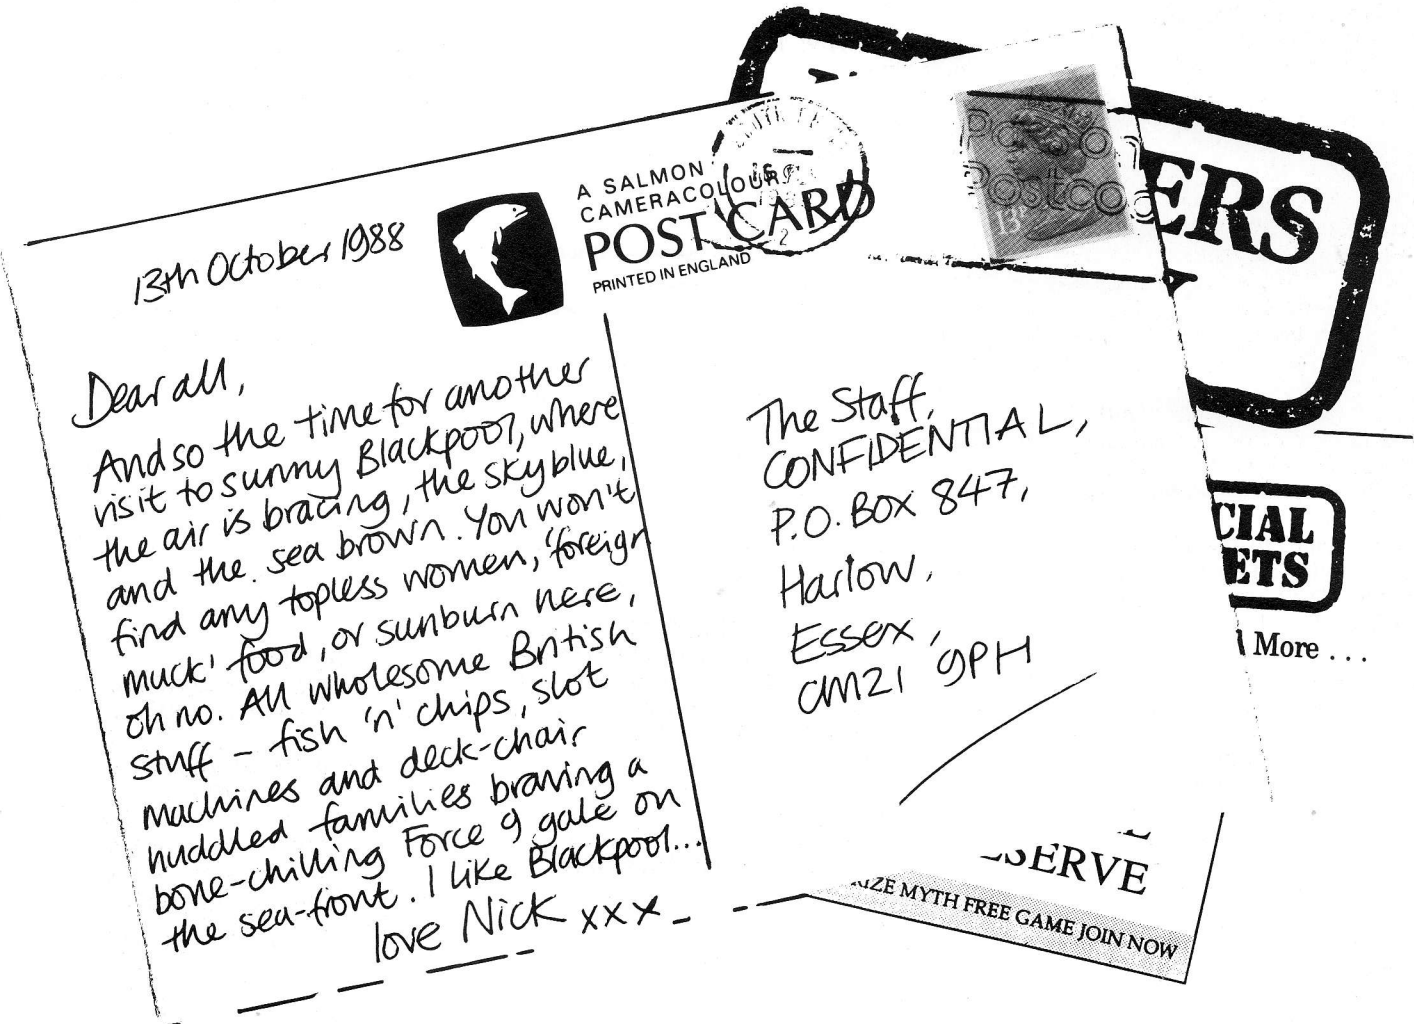 13th October 1988
A SALMON
CAMERACOLOUR
POST CARD
PRINTED IN ENGLAND
Dear all,
And so the time for another
visit to sunny Blackpool, where
the air is bracing, the sky blue,
and the sea brown. You won't
find any topless women, 'foreign
muck' food, or sunburn here,
oh no. All wholesome British
stuff – fish 'n' chips, slot
machines and deck-chair
huddled families braving a
bone-chilling Force 9 gale on
the sea-front. I like Blackpool...
love Nick xxx
The Staff,
CONFIDENTIAL,
P.O. Box 847,
Harlow,
Essex,
CM21 9PH
13
ERS
CIAL
ETS
More ...
SERVE
IZE MYTH FREE GAME JOIN NOW